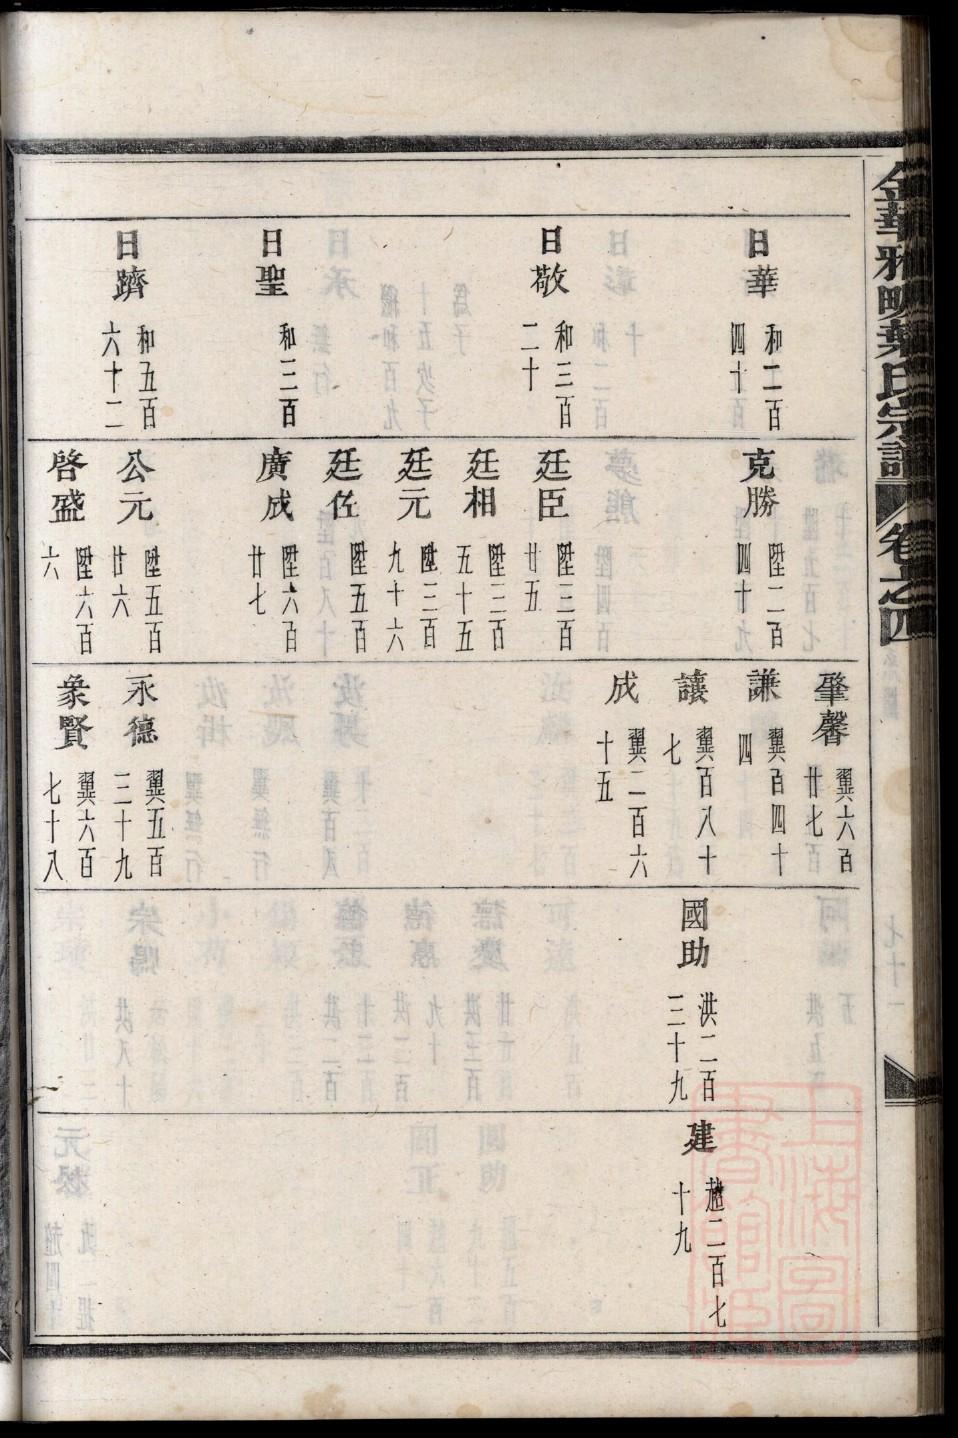 金華雅畈葉氏宗譜 卷之四
日華 和二百四十
日敬 和三百二十
日聖 和三百
日躋 和五百六十二
克勝 陞二百四十
廷臣 陞三百廿五
廷相 陞三百五十五
廷元 陞三百九十六
廷佐 陞五百
廣成 陞六百廿七
公元 陞五百廿六
啓盛 陞六百六
肇馨 翼六百廿七
謙 翼百四十四
讓 翼百八十七
成 翼二百六十五
永德 翼五百三十九
象賢 翼六百七十八
國助 洪二百三十九
建 趙二百七十九
上海圖書館藏